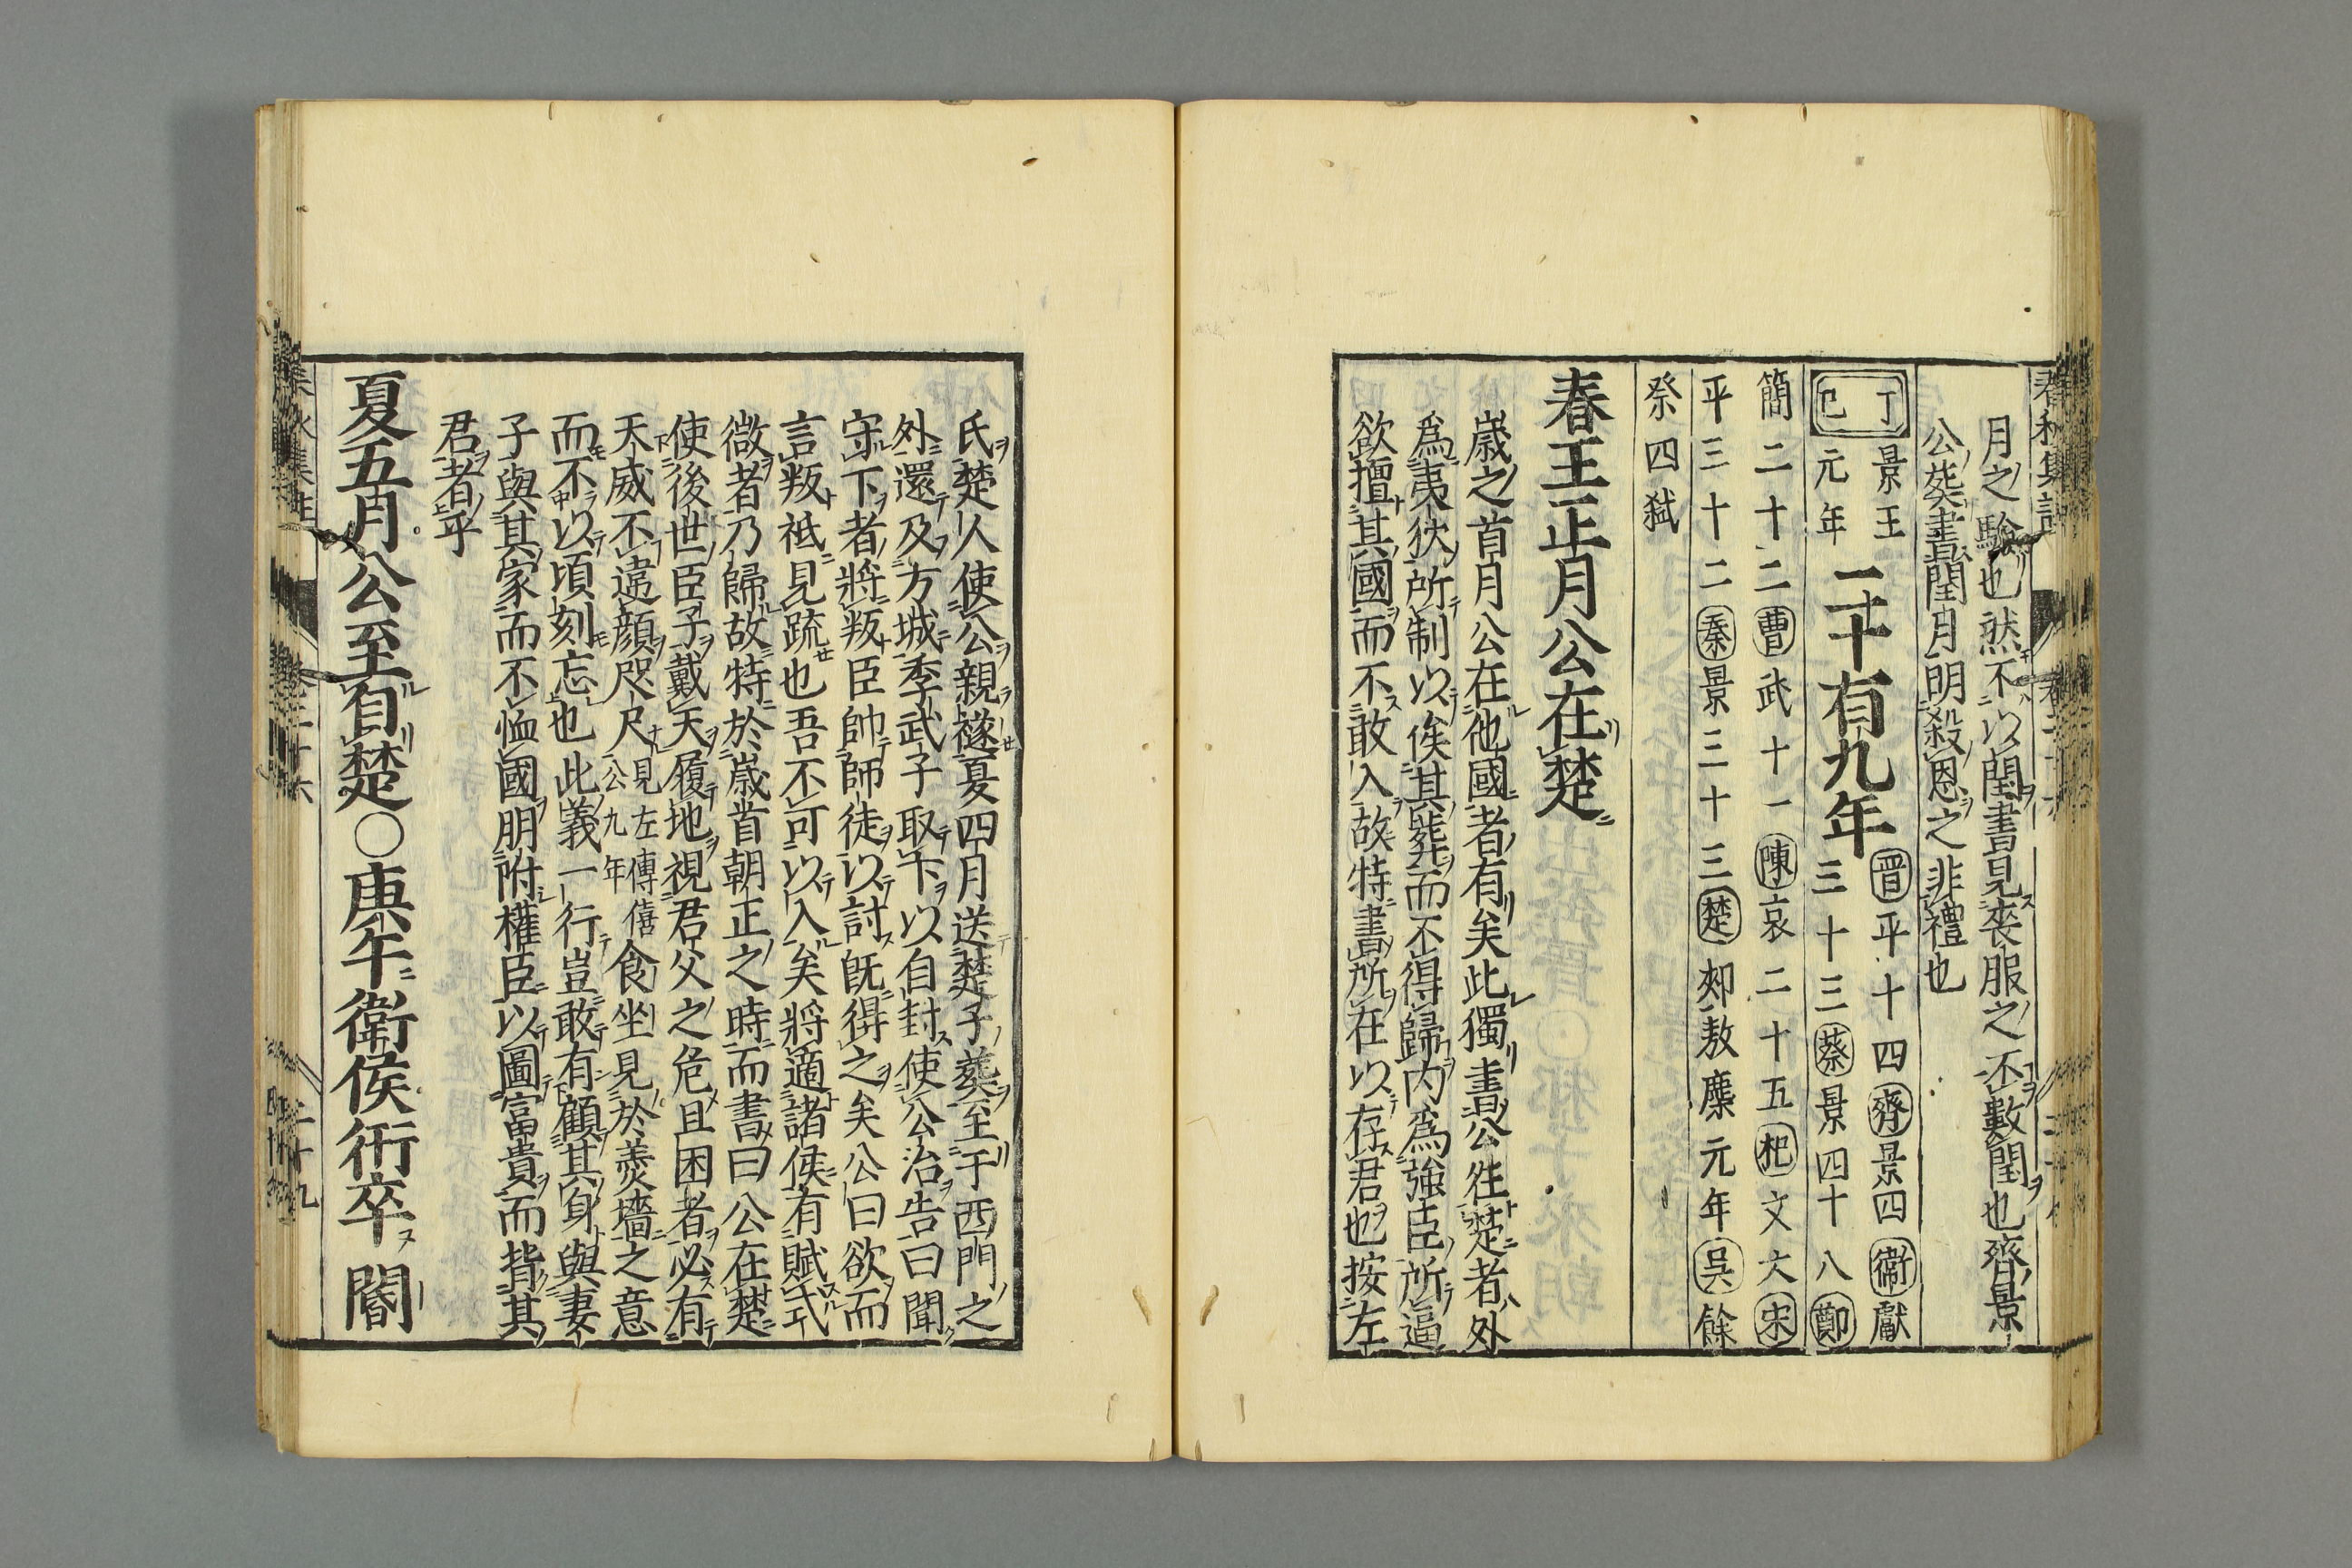 月之驗也然不以閏書見喪服之不數閏也齊景
公葬書閏月明殺恩之非禮也
丁巳 景王元年 二十有九年 晋平十四齊景四衞獻三十三蔡景四十八鄭
簡二十二曹武十一陳哀二十五杞文六宋
平三十二秦景三十三楚郟敖麇元年吳餘
祭四弑
春王正月公在楚
歳之首月公在他國者有矣此獨書公在楚者外
爲夷狄所制以俟其葬而不得歸内爲強臣所逼
欲擅其國而不敢入故特書所在以存君也按左
氏楚人使公親襚夏四月送楚子葬至于西門之
外還及方城季武子取卞以自封使公冶告曰聞
守卞者將叛臣帥師徒以討旣得之矣公曰欲而
言叛祗見疏也吾不可以入矣將適諸侯有賦式
微者乃歸故特於歳首朝正之時而書曰公在楚
使後世臣子戴天履地視君父之危且困者必有
天威不違顔咫尺見左傳僖公九年食坐見於羹墻之意
而不以頃刻忘也此義一行豈敢有顧其身與妻
子與其家而不恤國朋附權臣以圖富貴而背其
君者乎
夏五月公至自楚○庚午衞侯衎卒 閽